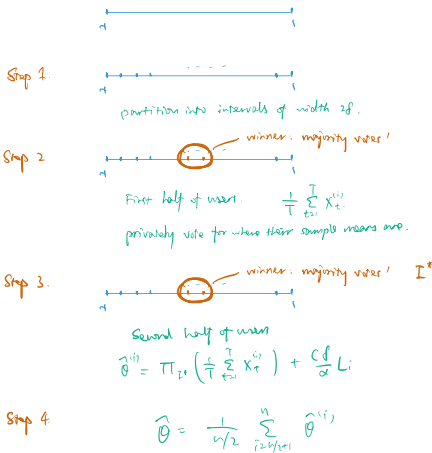 -1 1
Step 1.
-1 1
partition into intervals of width 2δ.
Step 2
winner: majority votes!
-1 1
First half of users. 1/T Σ_{t=1}^{T} X_t^{(i)}
privately vote for where their sample means are.
Step 3.
winner: majority votes! I*
-1 1
Second half of users
θ̂^{(i)} = Π_{I*} ( 1/T Σ_{t=1}^{T} X_t^{(i)} ) + Cδ/α L_i
Step 4.
θ̂ = 1/(n/2) Σ_{i=n/2+1}^{n} θ̂^{(i)}